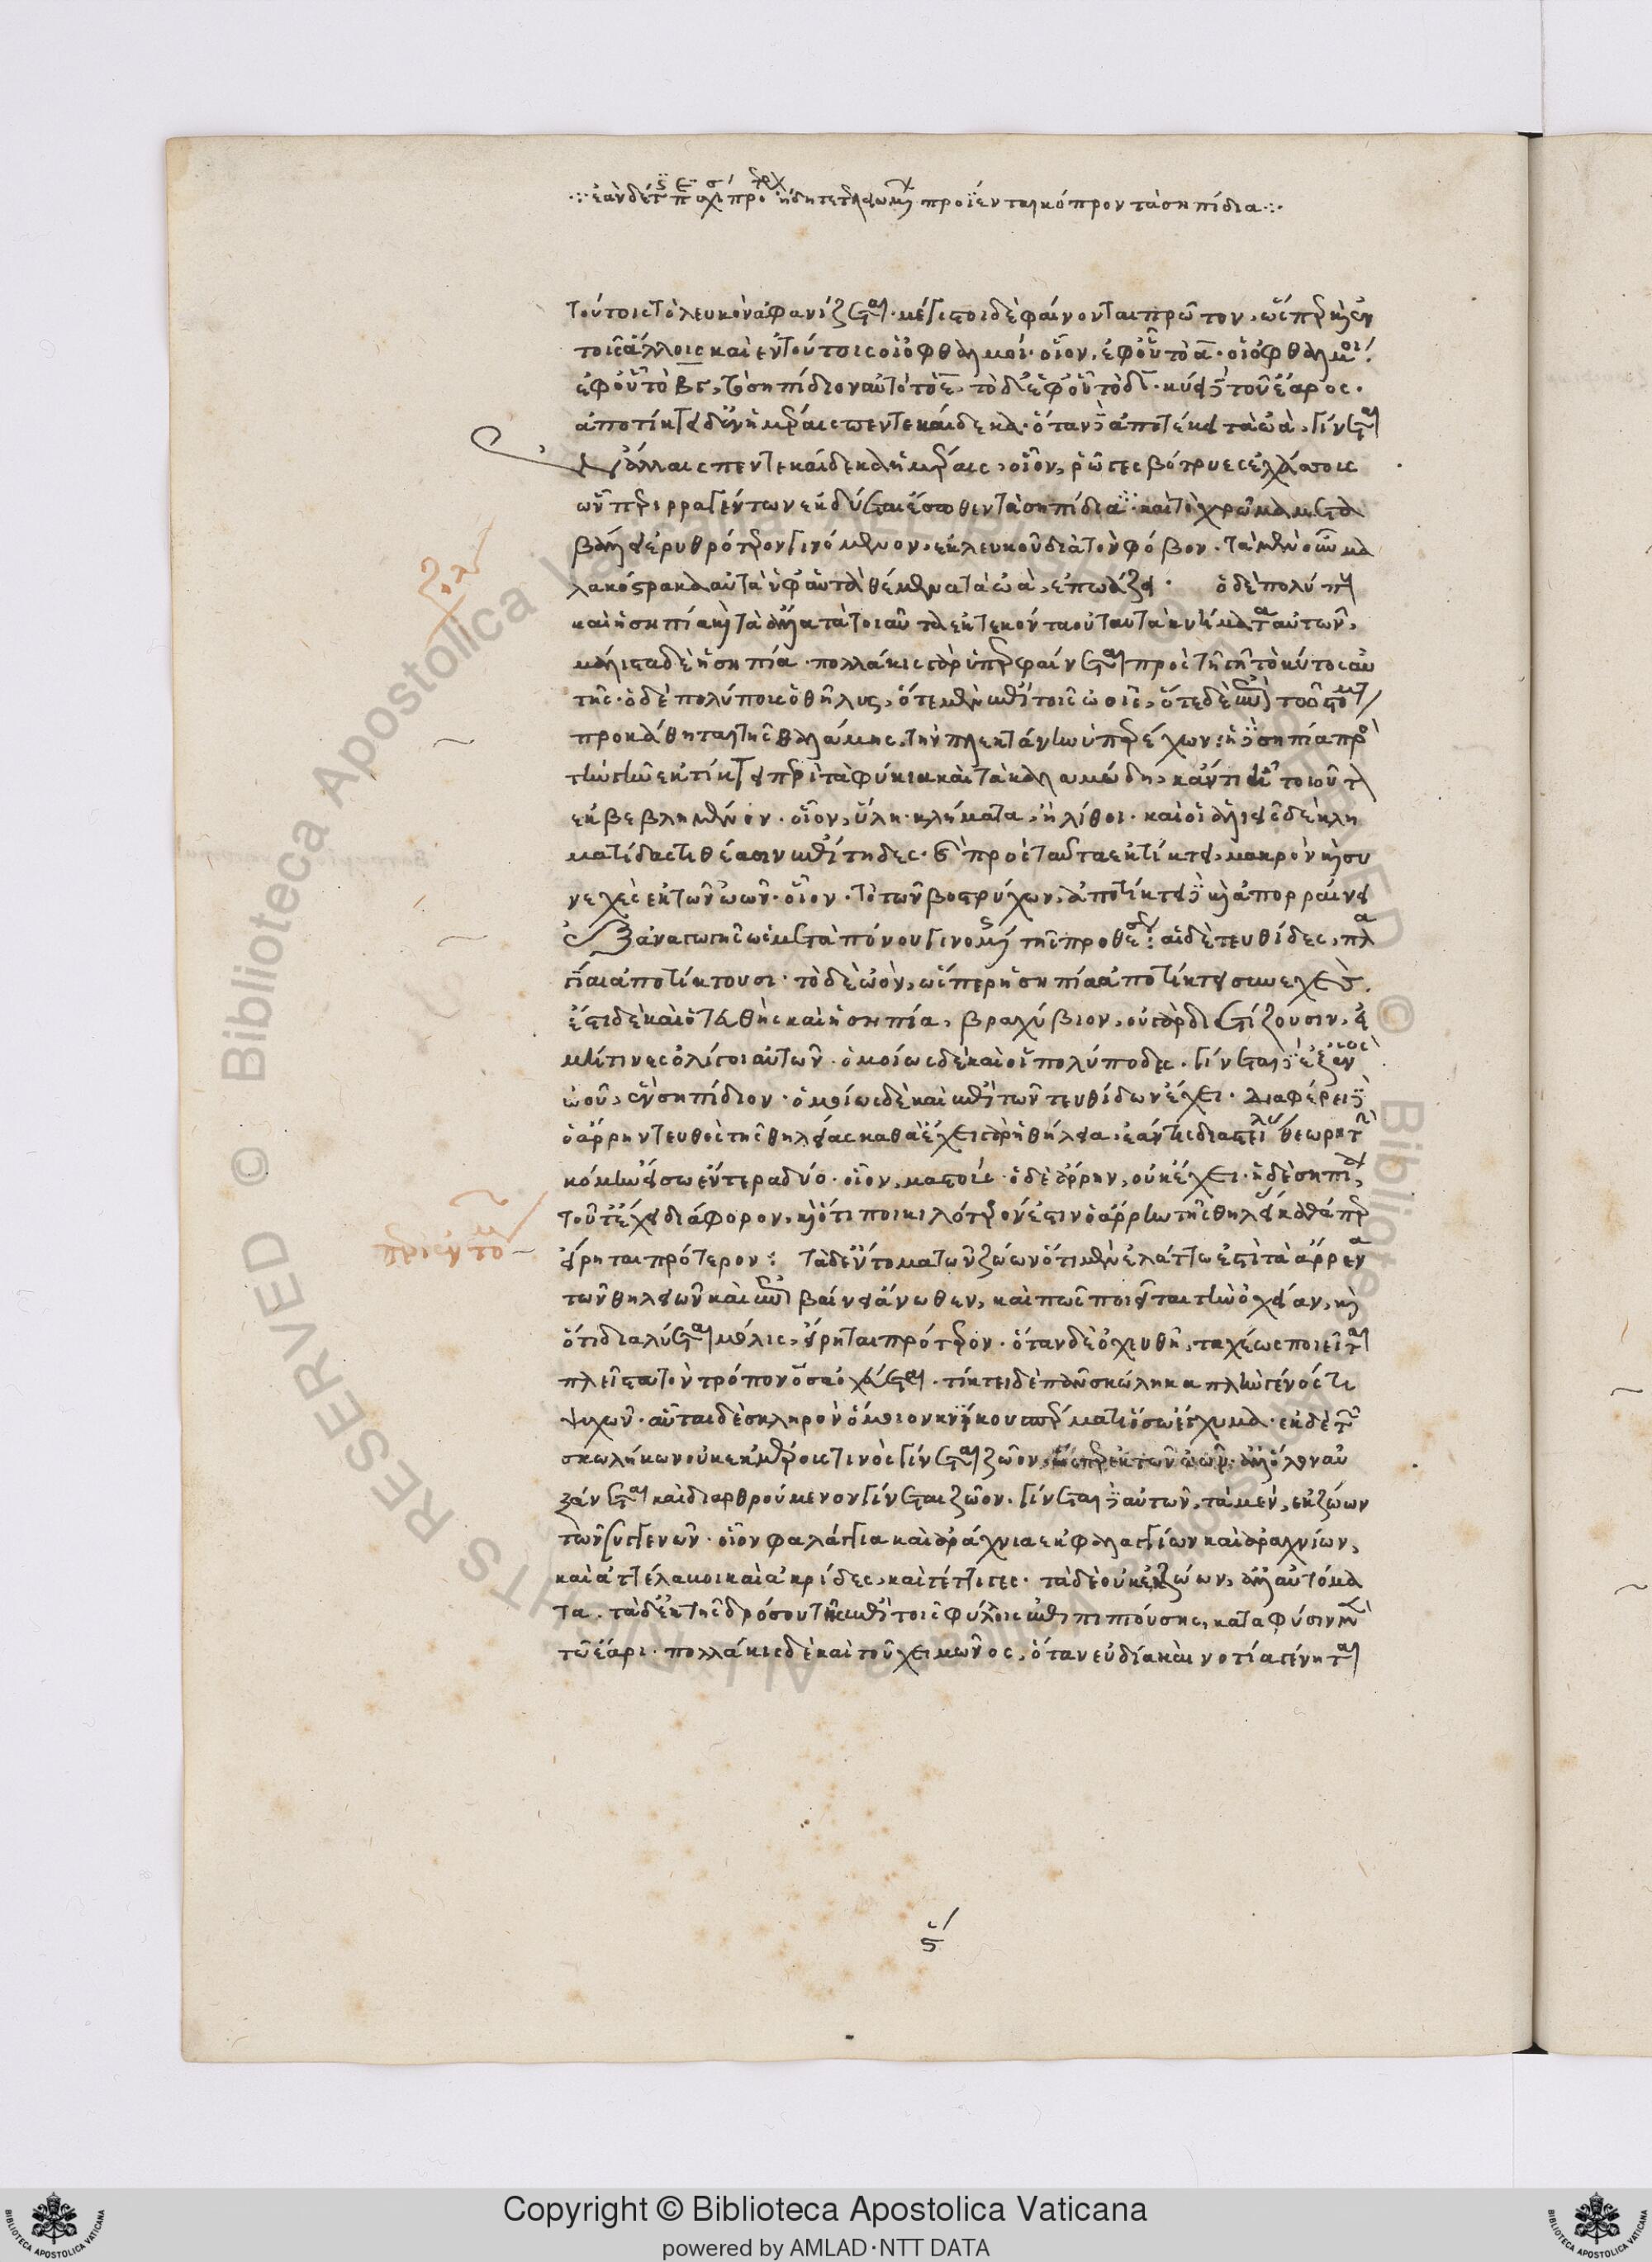 ἐὰν δέ τις περισχίσῃ πρὸ ἤδη τετελεωμένων προΐενται κόπρον τὰ σηπίδια
τούτοις τὸ λευκὸν ἀφανίζεται· μέγιστοι δὲ φαίνονται πρῶτον, ὥσπερ καὶ ἐν
τοῖς ἄλλοις καὶ ἐν τούτοις οἱ ὀφθαλμοί· οἷον, ἐφ' οὗ τὸ α· οἱ ὀφθαλμοί
ἐφ' οὗ τὸ βγ, τὸ σηπίδιον αὐτὸ τὸ ε, τὸ δ ἐφ' οὗ τὸ δ· κύει δὲ τοῦ ἔαρος·
ἀποτίκτει δ' ἐν ἡμέραις πεντεκαίδεκα· ὅταν δὲ ἀποτέκῃ τὰ ὠὰ, γίνεται
ἐν ἄλλαις πεντεκαίδεκα ἡμέραις, οἷον, ῥῶγες βότρυες ἐλάττους
ὧν περιρραγέντων ἐκδύεται ἔσωθεν τὰ σηπίδια· καὶ τὸ χρῶμα μετα
βάλλει ἐρυθρότερον γινόμενον, ἐκ λευκοῦ διὰ τὸν φόβον· τὰ μὲν οὖν μα
λακόστρακα αὐτὰ ὑφ' αὑτὰ θέμενα τὰ ὠὰ, ἐπωάζει· ὁ δὲ πολύπους
καὶ ἡ σηπία καὶ τὰ ἄλλα τὰ τοιαῦτα ἐκτεκόντα οὗ ταῦτα κυήματα αὐτῶν,
μάλιστα δὲ ἡ σηπία· πολλάκις γὰρ ὑπερφαίνεται πρὸς τῇ γῇ τὸ κύτος αὐ
τῆς· ὁ δὲ πολύπους ὁ θῆλυς, ὁτὲ μὲν ἐπὶ τοῖς ὠοῖς, ὁτὲ δὲ ἐπὶ τοῦ στόματος
προκάθηται τῆς θαλάμης, τὴν πλεκτάνην ὑπερέχων· ἡ δὲ σηπία πρὸς
τὴν γῆν ἐκτίκτει περὶ τὰ φύκια καὶ τὰ καλαμώδη, κἄν τι ᾖ τοιοῦτον
ἐκβεβλημένον· οἷον, ὕλη· κλήματα, ἢ λίθοι· καὶ οἱ ἁλιεῖς δὲ κλη
ματίδας τιθέασιν ἐπίτηδες· καὶ πρὸς ταῦτα ἐκτίκτει, μακρὸν καὶ συ
νεχὲς ἐκ τῶν ὠῶν· οἷον· τὸ τῶν βοστρύχων, ἀποτίκτει δὲ καὶ ἀπορραίνει
ἐξ ἀναγωγῆς ὡς μετὰ πόνου γινομένης τῆς προθέσεως· αἱ δὲ τευθίδες, πλα
γίαι ἀποτίκτουσι· τὸ δὲ ὠὸν, ὥσπερ ἡ σηπία ἀποτίκτει συνεχές.
ἔστι δὲ καὶ ὁ τευθὶς καὶ ἡ σηπία, βραχύβιον, οὐ γὰρ διετίζουσιν, εἰ
μή τινες ὀλίγοι αὐτῶν· ὁμοίως δὲ καὶ οἱ πολύποδες· γίνεται δὲ ἐξ ἑνὸς
ὠοῦ, ἓν σηπίδιον· ὁμοίως δὲ καὶ ἐπὶ τῶν τευθίδων ἔχει· διαφέρει δὲ
ὁ ἄρρην τευθὸς τῆς θηλείας καθὰ ἔχει γὰρ ἡ θήλεια, ἐάν τις διαστείλας θεωρῇ τὴν
κόμην εἴσω ἐρυθρὰ δύο· οἷον, μαστούς· ὁ δὲ ἄρρην, οὐκ ἔχει· ἡ δὲ σηπία,
τοῦτ' ἔχει διάφορον, καὶ ὅτι ποικιλότερόν ἐστιν ὁ ἄρρην τῆς θηλείας καθάπερ
εἴρηται πρότερον: τὰ δ' ἔντομα τῶν ζώων ὅτι μὲν ἐλάττω ἐστὶ τὰ ἄρρενα
τῶν θηλειῶν καὶ ἐπιβαίνει ἄνωθεν, καὶ πῶς ποιεῖται τὴν ὀχείαν, καὶ
ὅτι διαλύεται μόλις, εἴρηται πρότερον· ὅταν δὲ ὀχευθῇ, ταχέως ποιεῖται
πλεῖστα τὸν τρόπον ὅσα ὀχεύεται· τίκτει δὲ πάντα σκώληκα πλὴν γένος τι
ψυχῶν· αὗται δὲ σκληρὸν ὅμοιον κνήκου σπέρματι ἔσω ἔγχυμα· ἐκ δὲ τῶν
σκωλήκων οὐκ ἐκ μέρους τινὸς γίνεται ζῷον, ὥσπερ ἐκ τῶν ὠῶν· ἀλλ' ὅλον αὐ
ξάνεται καὶ διαρθρούμενον γίνεται ζῷον. γίνεται δὲ αὐτῶν, τὰ μὲν, ἐκ ζώων
τῶν συγγενῶν· οἷον φαλάγγια καὶ ἀράχνια ἐκ φαλαγγίων καὶ ἀραχνίων,
καὶ ἀττέλαμοι καὶ ἀκρίδες, καὶ τέττιγες· τὰ δὲ οὐκ ἐκ ζώων, ἀλλ' αὐτόμα
τα. τὰ δ' ἐκ τῆς δρόσου τῆς ἐπὶ τοῖς φύλλοις ἐπιπιπτούσης, κατὰ φύσιν μὲν
τῷ ἔαρι· πολλάκις δὲ καὶ τοῦ χειμῶνος, ὅταν εὐδία καὶ νοτία γένηται